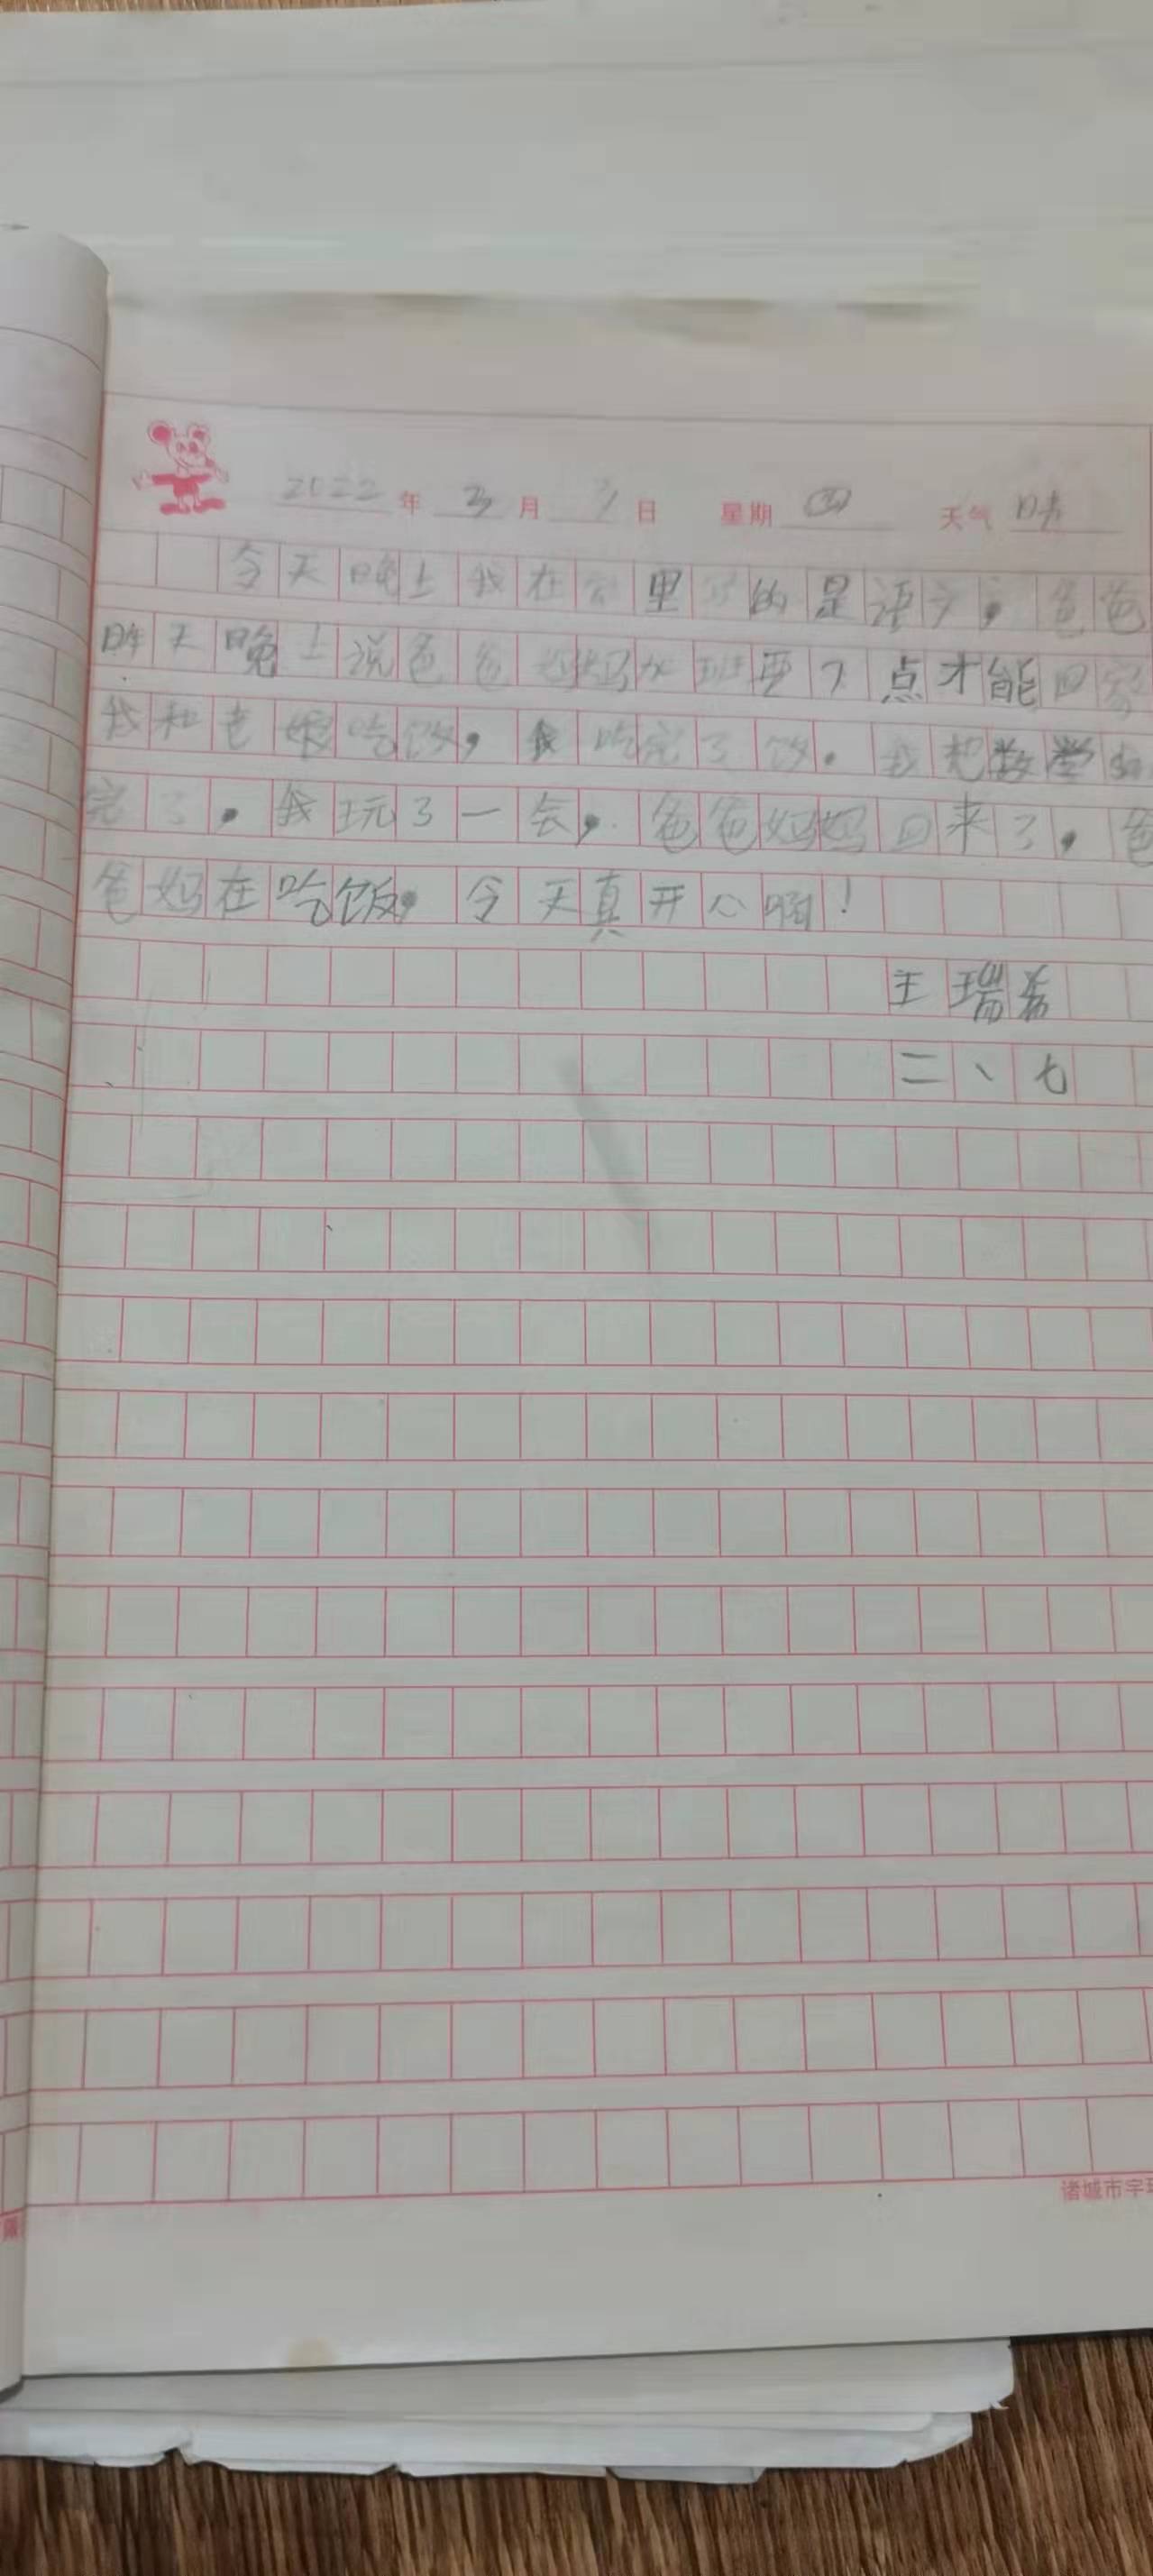 2022年 3月 31日 星期四 天气 晴
今天晚上我在家里写的是语文，爸爸
昨天晚上说爸爸妈妈加班要7点才能回家
我和老娘吃饭，我吃完了饭。我把数学
完了，我玩了一会，爸爸妈妈回来了，爸
爸妈在吃饭，今天真开心啊！
王瑞
二、七
诸城市